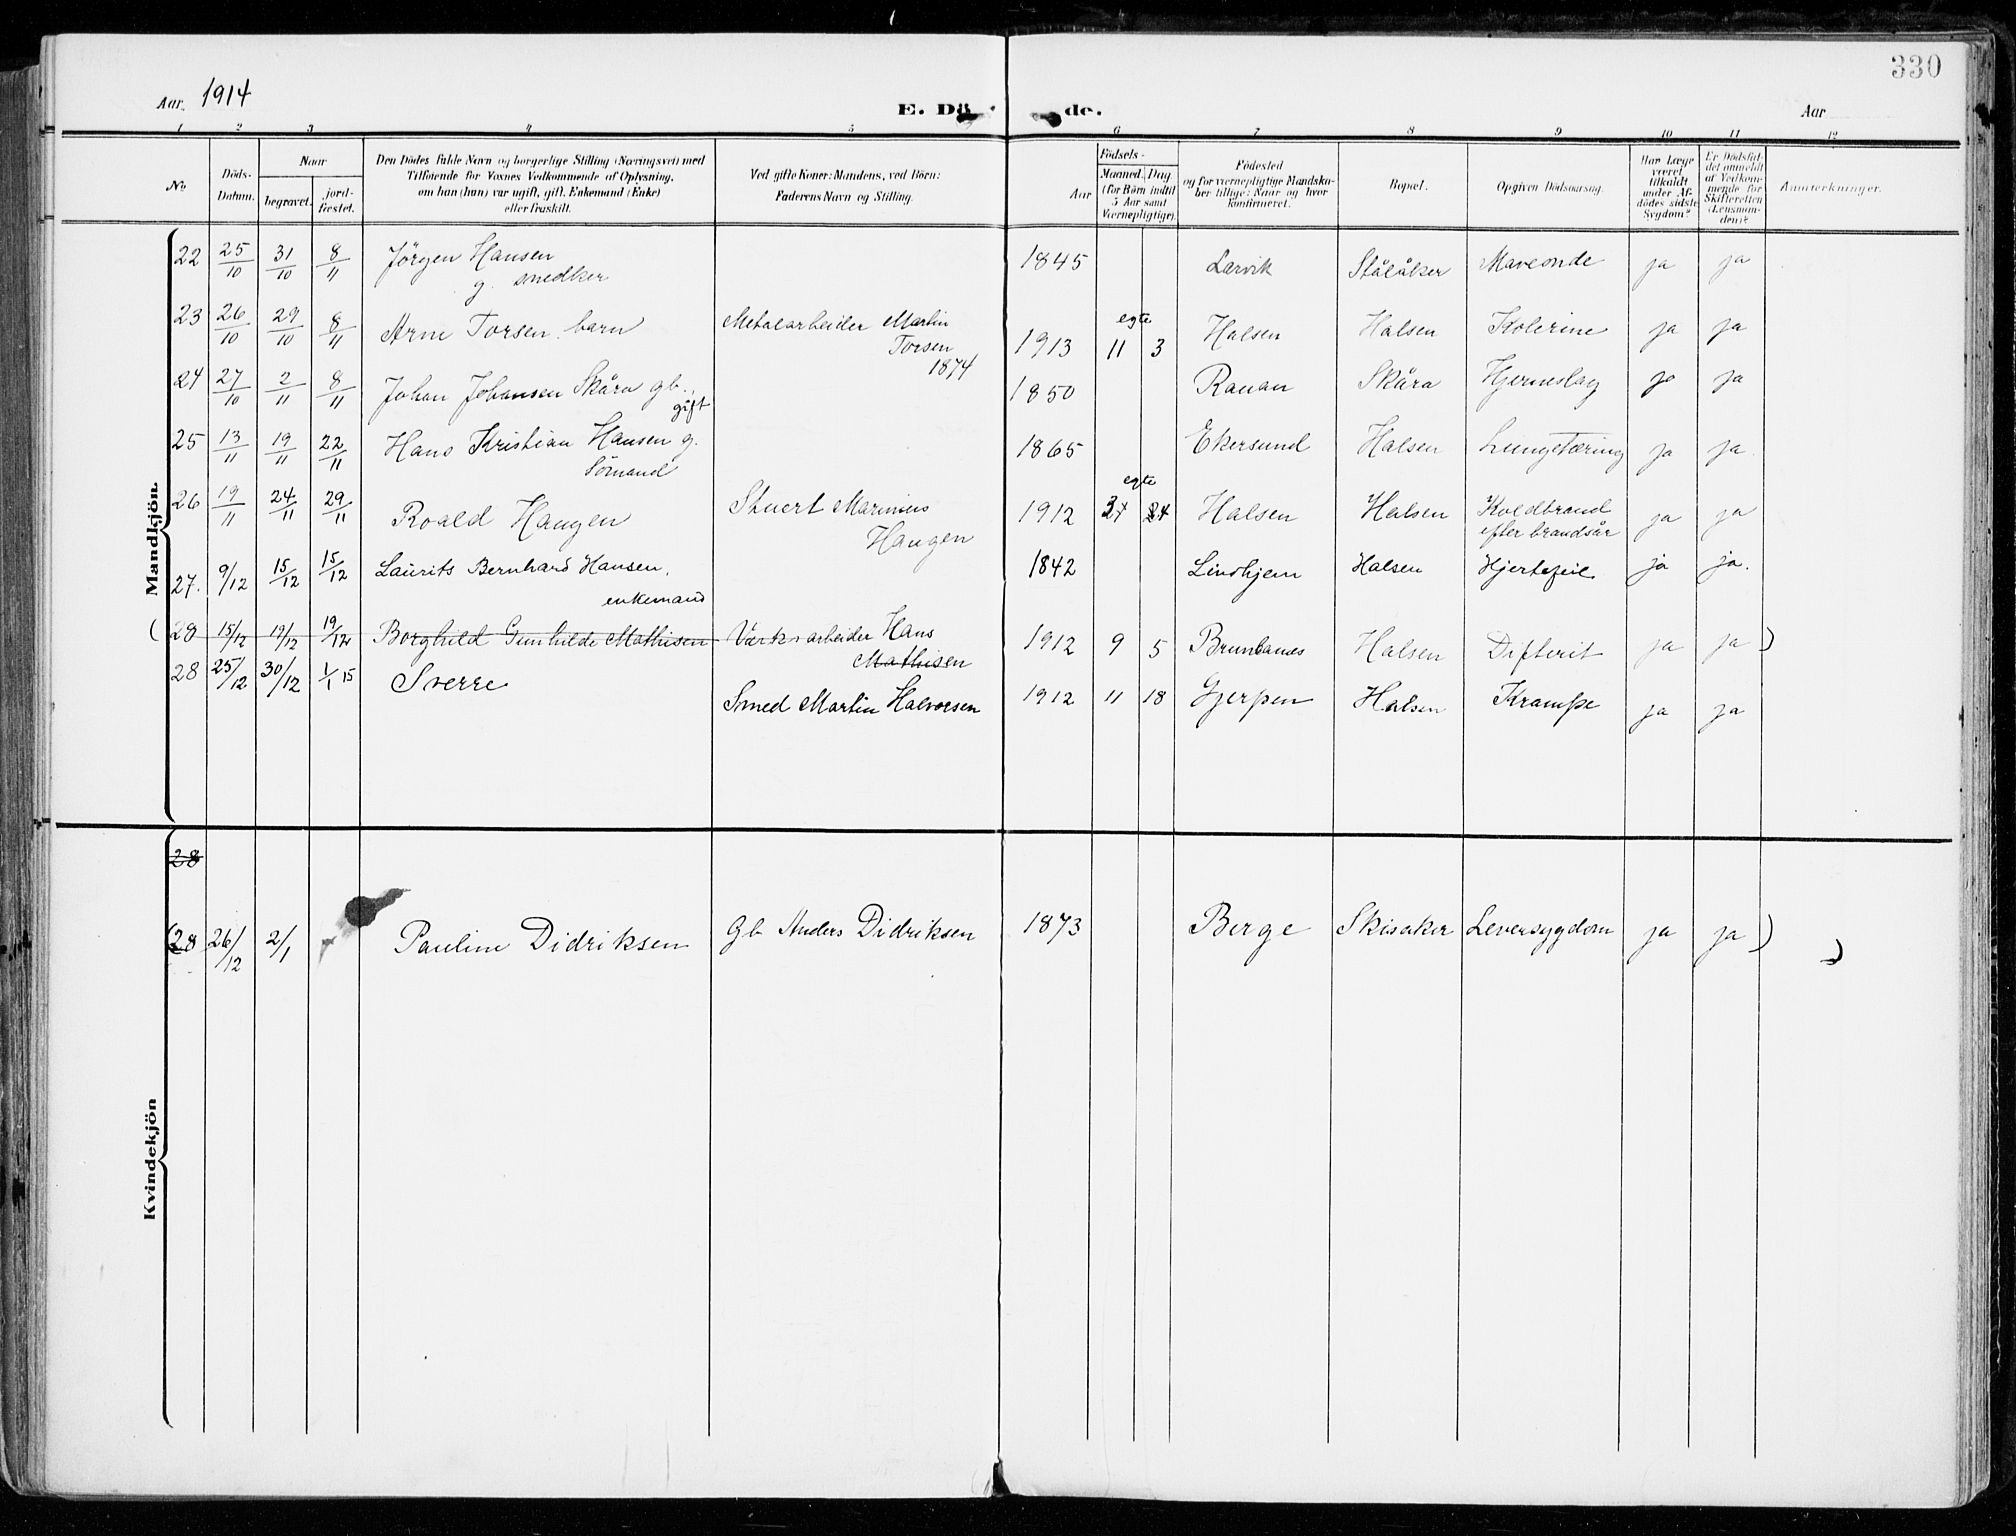 330
Aar. 1914
E. Dö de.
Aar
1 2 3 4 5 6 7 8 9 10 11 12
No
Döds-Datum.
Naar
begravet.
jord-fæstet.
Den Dödes fulde Navn og borgerlige Stilling (Næringsvei) med
Tilföiende for Voxnes Vedkommende af Oplysning,
om han (hun) var ugift, gift, Enkemand (Enke)
eller fraskilt.
Ved gifte Koner: Mandens, ved Börn:
Faderens Navn og Stilling.
Födsels-
Aar
Maaned. Dag
(for Börn indtil
5 Aar samt
Værnepligtige).
Födested
og for værnepligtige Mandska-
ber tillige: Naar og hvor
konfirmeret.
Bopæl.
Opgiven Dödsaarsag.
Har Læge
været
tilkaldt
under Af-
dödes sidste
Sygdom?
Er Dödsfal-
det anmeldt
af Vedkom-
mende for
Skifteretten
(Lensman-
den)?
Anmærkninger.
Mandkjön.
22 25/10 31/10 8/11 Jörgen Hansen 1845 Larvik Stålåker Maveonde ja ja
g. snedker
23 26/10 29/10 8/11 Arne Torsen barn Metalarbeider Martin Torsen 1874 1913 egte 11 3 Halsen Halsen Kolerine ja ja
24 27/10 2/11 8/11 Johan Johansen Skåra gb. 1850 Ranan Skåra Hjerneslag ja ja
gift
25 13/11 19/11 22/11 Hans Kristian Hansen g. 1865 Ekersund Halsen Lungetæring ja ja.
Sömand
26 19/11 24/11 29/11 Roald Haugen Stuert Marinius Haugen 1912 egte 24 Halsen Halsen Koldbrand ja ja
efter brandsår
27. 9/12 15/12 15/12 Laurits Bernhard Hansen, 1842 Lindhjem Halsen Hjertefeil ja ja.
enkemand
(28 15/12 19/12 19/12 Borghild Gunhilde Mathisen Værksarbeider Hans Mathisen 1912 9 5 Brunlanes Halsen Difterit ja ja)
28 25/12 30/12 1/1 15 Sverre Smed Martin Halvorsen 1912 11 18 Gjerpen Halsen Krampe ja ja
Kvindekjön
28
(28 26/12 2/1 Pauline Didriksen Gb Anders Didriksen 1873 Berge Skisaker Leversygdom ja ja)